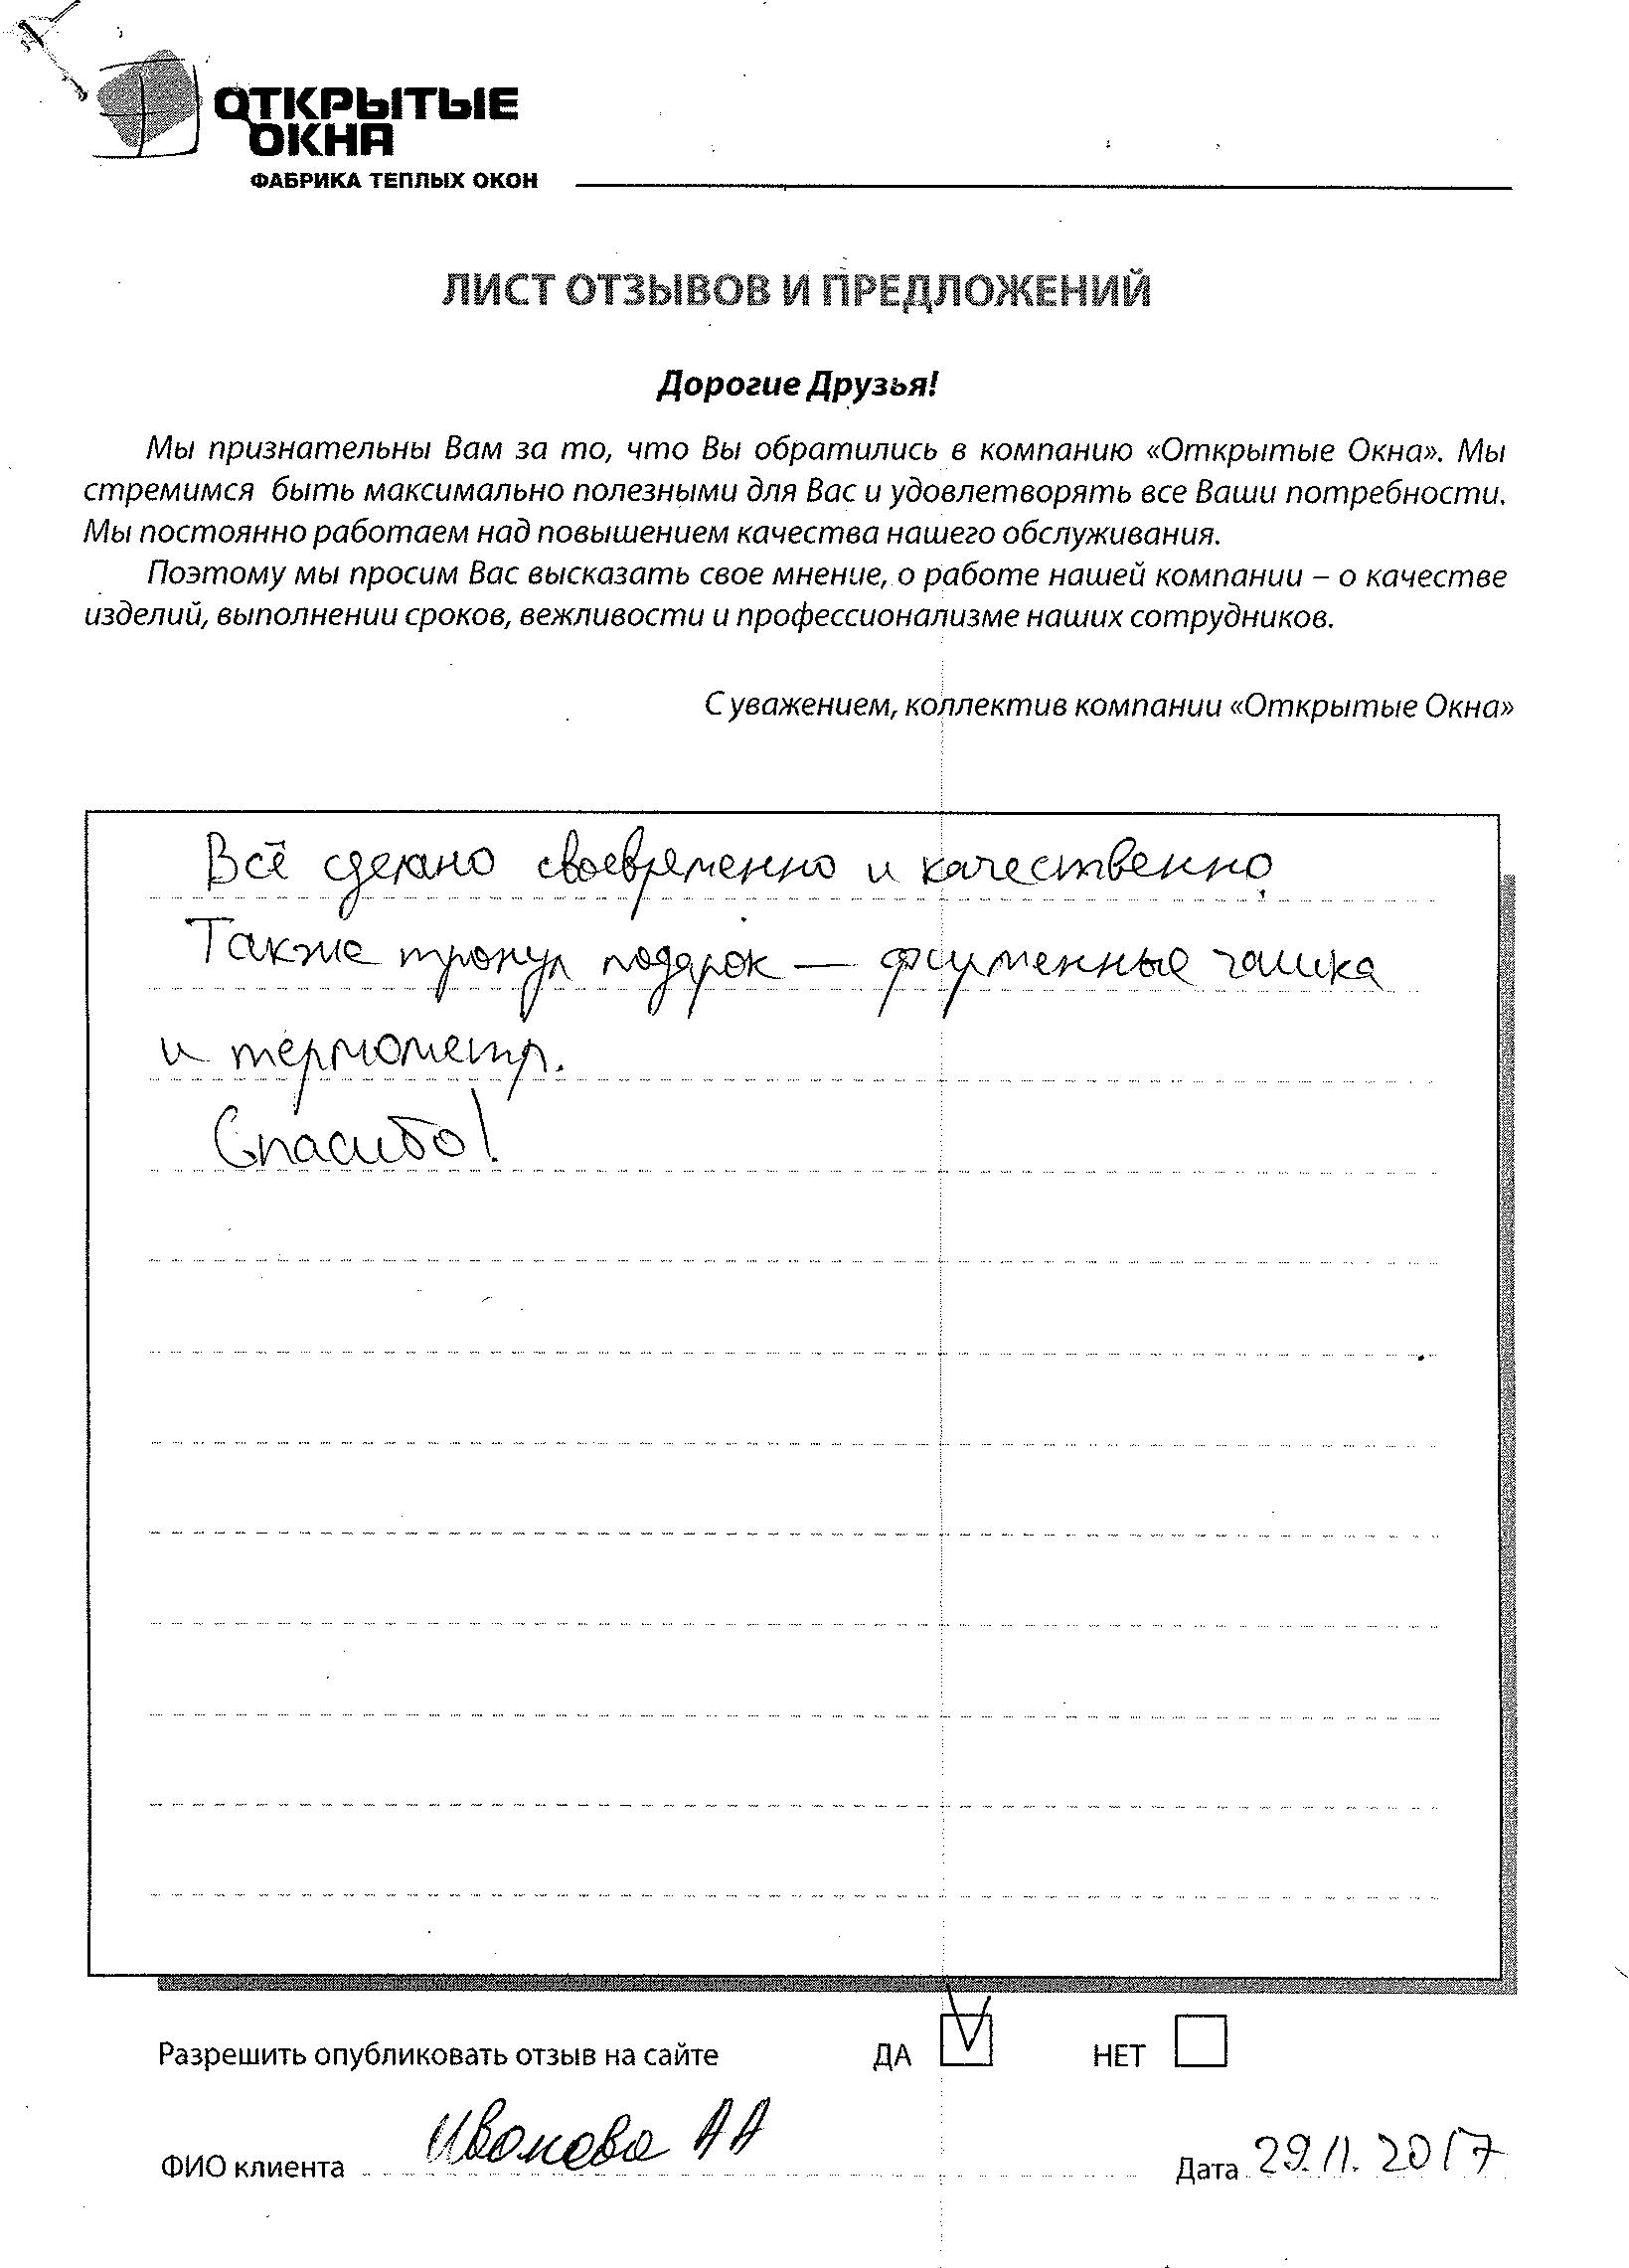 ОТКРЫТЫЕ
ОКНА
ФАБРИКА ТЕПЛЫХ ОКОН
ЛИСТ ОТЗЫВОВ И ПРЕДЛОЖЕНИЙ
Дорогие Друзья!
Мы признательны Вам за то, что Вы обратились в компанию «Открытые Окна». Мы
стремимся быть максимально полезными для Вас и удовлетворять все Ваши потребности.
Мы постоянно работаем над повышением качества нашего обслуживания.
Поэтому мы просим Вас высказать свое мнение, о работе нашей компании – о качестве
изделий, выполнении сроков, вежливости и профессионализме наших сотрудников.
С уважением, коллектив компании «Открытые Окна»
Всё сделано своевременно и качественно,
Также тронул подарок — фирменные чашка
и термометр.
Спасибо!
Разрешить опубликовать отзыв на сайте ДА НЕТ
ФИО клиента Иванова АА Дата 29.11.2017